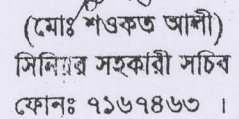 (মোঃ শওকত আলী)
সিনিয়র সহকারী সচিব
ফোনঃ ৭১৬৭৪৬৩ ।